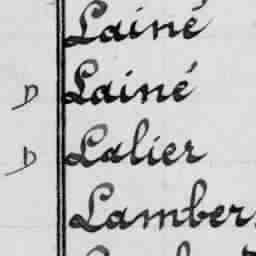 Lainé
D Lainé
D Lalier
Lamber